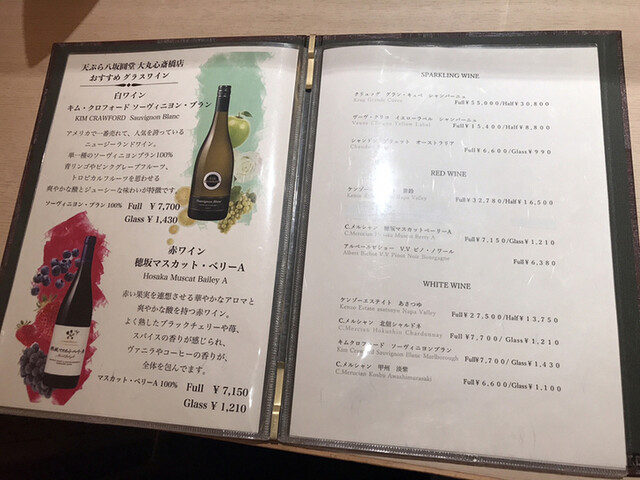 天ぷら八坂圓堂 大丸心斎橋店
おすすめ グラスワイン
白ワイン
キム・クロフォード ソーヴィニヨン・ブラン
KIM CRAWFORD Sauvignon Blanc
アメリカで一番売れて、人気を誇っている
ニュージーランドワイン。
単一種のソーヴィニヨンブラン100%
青リンゴやピンクグレープフルーツ、
トロピカルフルーツを思わせる
爽やかな酸とジューシーな味わいが特徴です。
ソーヴィニヨン・ブラン 100% Full ¥ 7,700
Glass ¥ 1,430
赤ワイン
穂坂マスカット・ベリーA
Hosaka Muscat Bailey A
赤い果実を連想させる華やかなアロマと
爽やかな酸を持つ赤ワイン。
よく熟したブラックチェリーや苺、
スパイスの香りが感じられ、
ヴァニラやコーヒーの香りが、
全体を包んでます。
マスカット・ベリーA 100% Full ¥ 7,150
Glass ¥ 1,210
SPARKLING WINE
グラン・キュベ シャンパーニュ
Full¥55,000/Half¥30,800
ヴーヴ・クリコ イエローラベル シャンパーニュ
Full¥15,400/Half¥8,800
オーストラリア
Full¥6,600/Glass¥990
RED WINE
Napa Valley
Full¥32,780/Half¥16,500
C.メルシャン 穂坂マスカットベーリーA
Full¥7,150/Glass¥1,210
アルベールビショー V.V ピノ・ノワール
Albert Bichot V.V Pinot Noir Bourgogne
Full¥6,380
WHITE WINE
ケンゾーエステイト あさつゆ
Kenzo Estate asatsuyu Napa Valley
Full¥27,500/Half¥13,750
C.メルシャン 北信シャルドネ
C.Mercian Hokushin Chardonnay
Full¥7,700/Glass¥1,210
キムクロフォード ソーヴィニヨンブラン
Kim Crawford Sauvignon Blanc Marlborough
Full¥7,700/Glass¥1,430
C.メルシャン 甲州
C.Mercian Koshu
Full¥6,600/Glass¥1,100